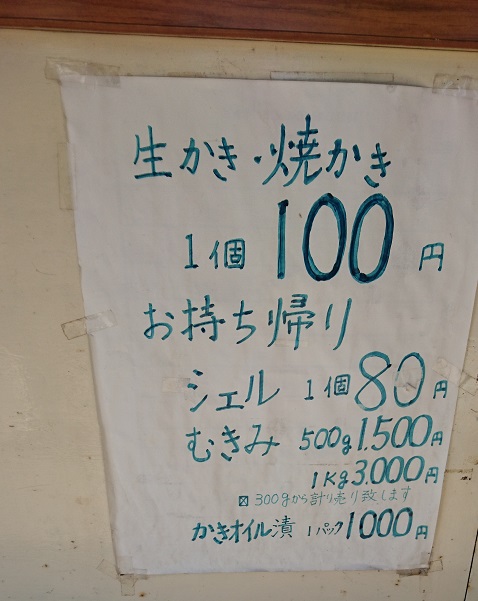 生かき・焼かき
1個 100円
お持ち帰り
シェル 1個 80円
むきみ 500g 1.500円
1Kg 3.000円
☒ 300gから計り売り致します
かきオイル漬 1パック 1000円